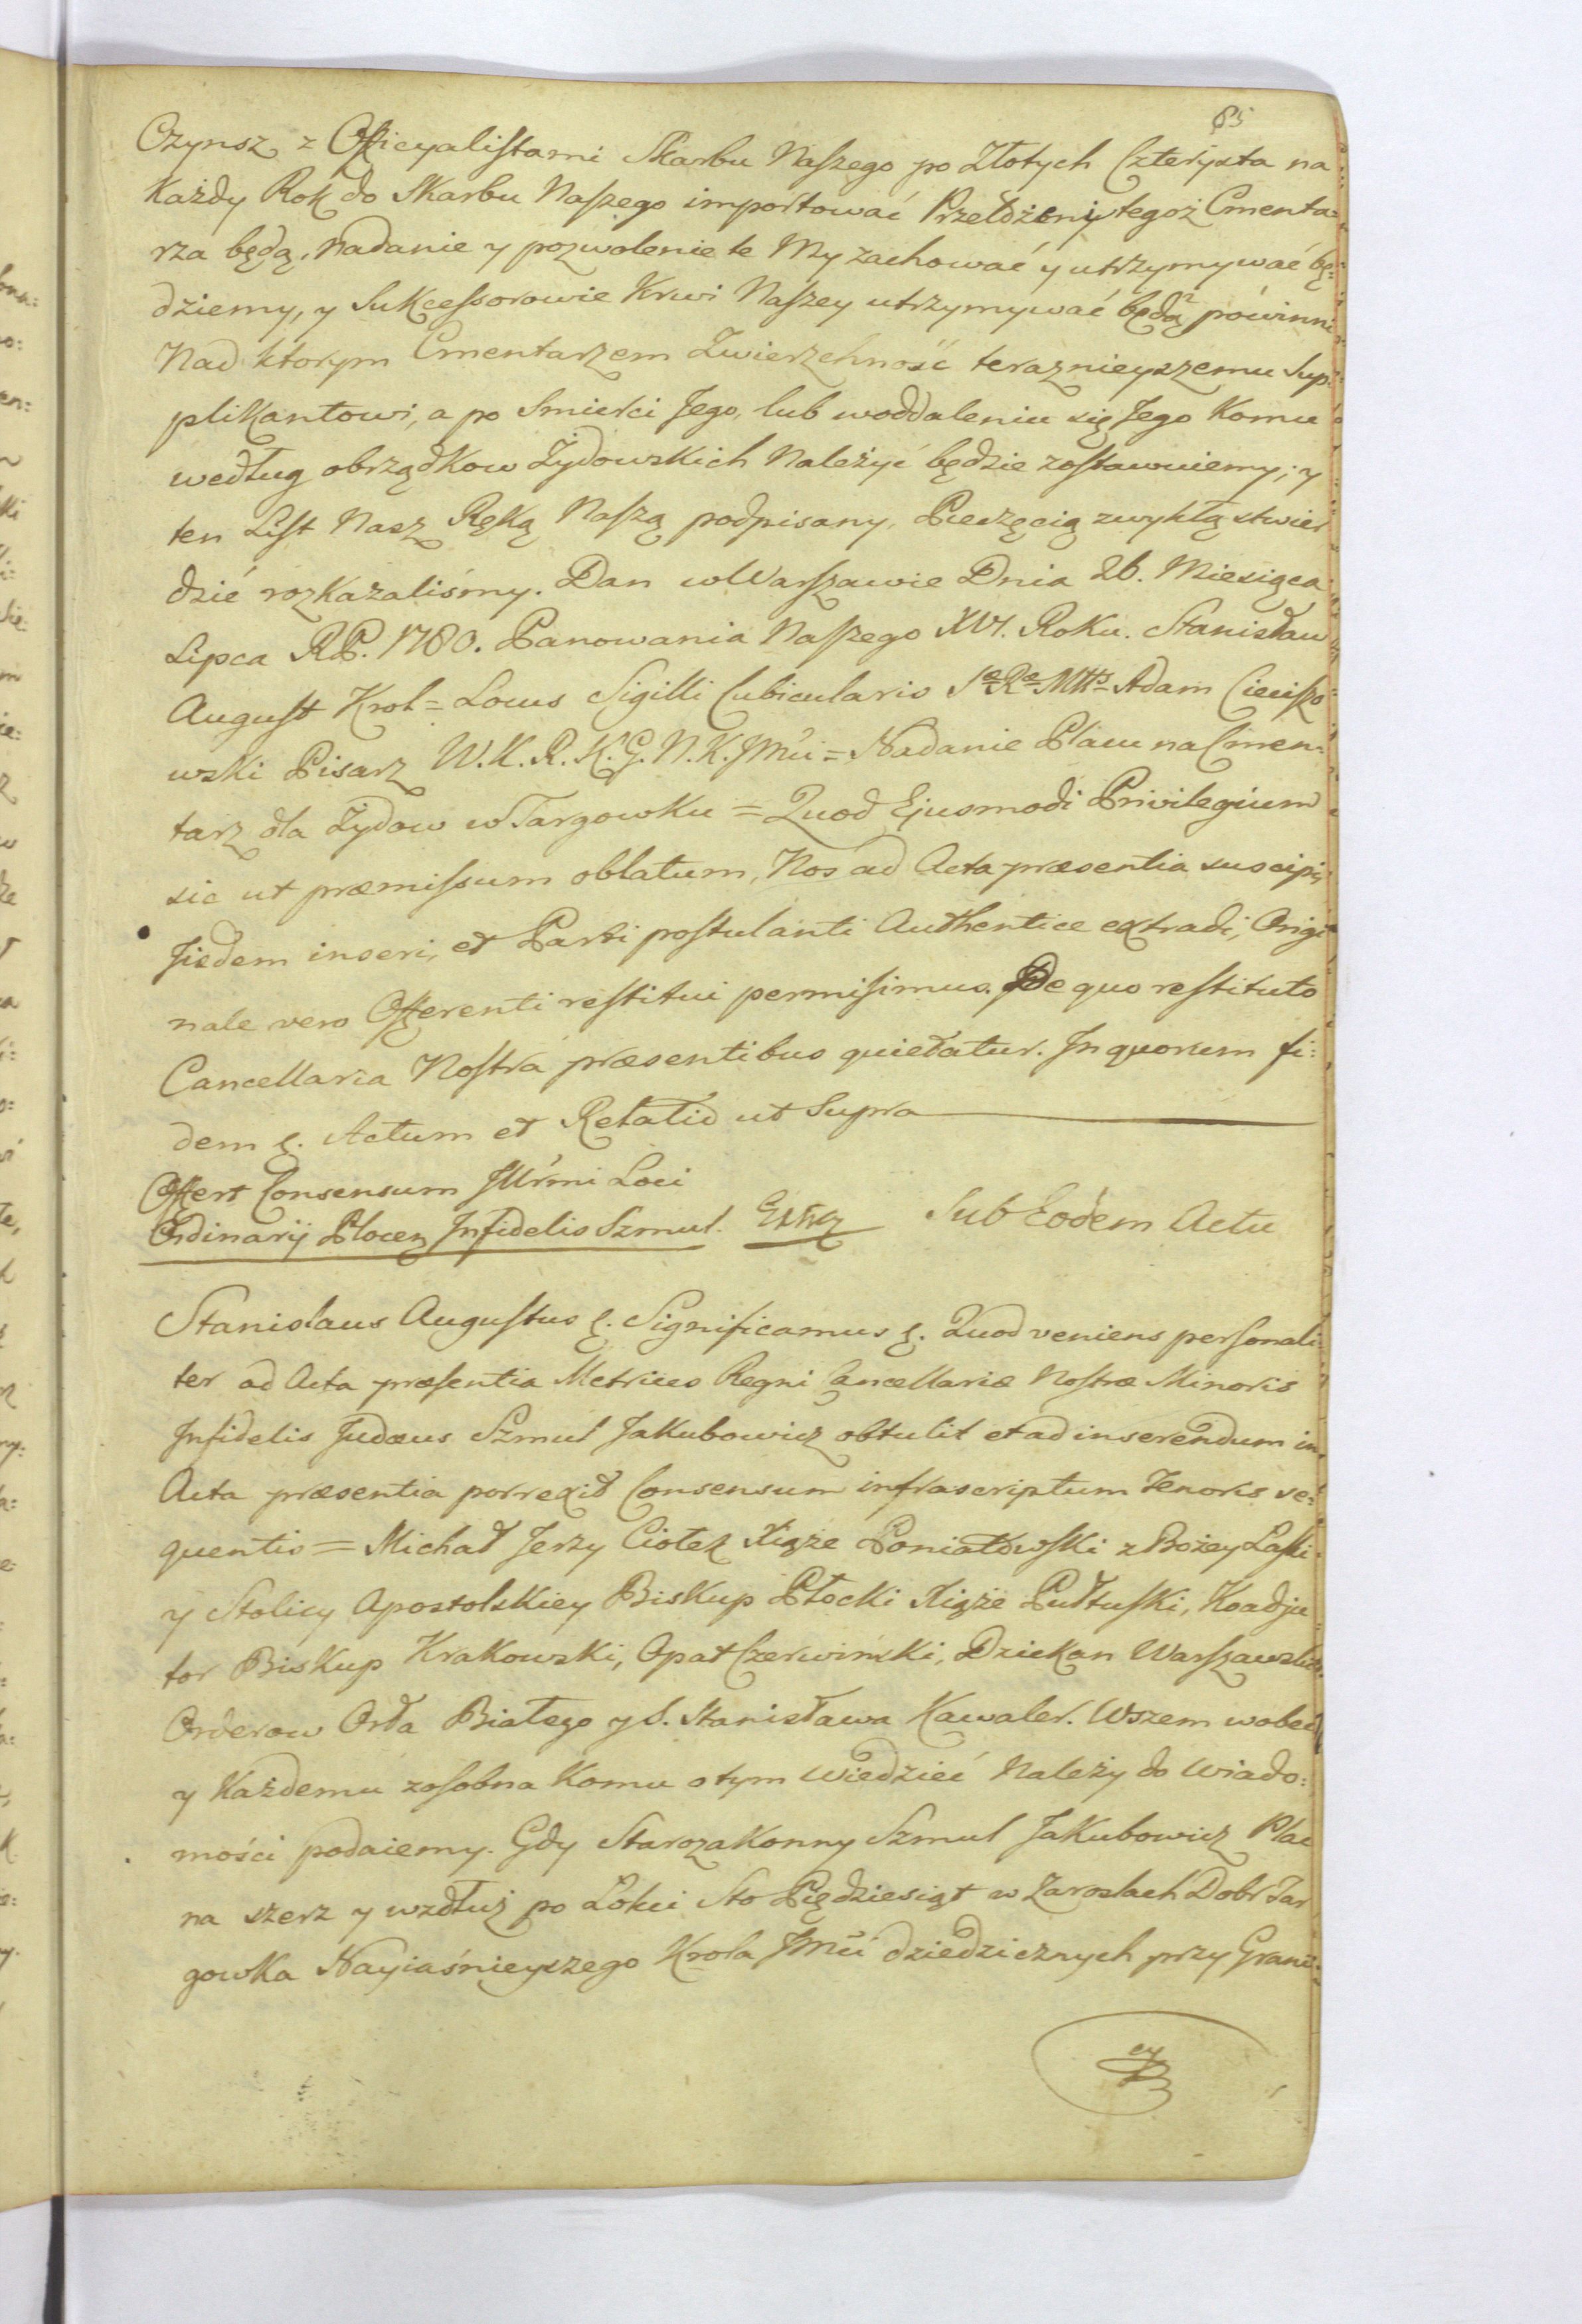 85
Czynsz z Officyalistami Skarbu Naszego po Złotych Czterysta na
Każdy Rok do Skarbu Naszego importować Przełożeni tegoż Cmenta=
rza będą, Nadanie y pozwolenie te My zachować y utrzymywać bę=
dziemy, y Sukcessorowie Krwi Naszey utrzymywać będą powinni
Nad ktorym Cmentarzem Zwierzchność teraznieyszemu Sup=
plikantowi, a po Smierci Jego, lub woddaleniu się Jego Komu
według obrządkow Żydowskich Należyć będzie zostawuiemy; y
ten List Nasz Ręką Naszą podpisany, Pieczęcią zwykłą stwier
dzić rozkazaliśmy. Dan w Warszawie Dnia 26. Miesiąca
Lipca R.P. 1780. Panowania Naszego XVI. Roku. Stanisław
August Krol = Locus Sigilli Cubicularis Sæ Ræ Mttis Adam Cieciszo=
wski Pisarz W.K.R.K.G.N.K.JMći = Nadanie Placu na Cmen=
tarz dla Żydow w Targowku = Quod Ejusmodi Privilegium
sic ut præmissum oblatum, Nos ad Acta præsentia suscipi,
Jisdem inseri, et Parti postulanti Authentice extradi, Origi
nale vero Offerenti restitui permisimus. De quo restituto
Cancellaria Nostra præsentibus quietatur. In quorum fi=
dem &. Actum et Relatio ut Supra
Offert Consensum Jllrmi Loci
Ordinarij Plocen Infidelis Szmul. Sub Eodem Actu
Stanislaus Augustus &. Significamus &. Quod veniens personali
ter ad Acta præsentia Metrices Regni Cancellariæ Nostræ Minoris
Infidelis Judæus Szmul Jakubowicz obtulit et ad inserendum in
Acta præsentia porrexit Consensum infrascriptum Tenoris se=
quentis = Michał Jerzy Ciołek Xiąże Poniatowski z Bożey Łaski
y Stolicy Apostolskiey Biskup Płocki Xiąże Pułtuski, Koadju
tor Biskup Krakowski, Opat Czerwiński, Dziekan Warszawski
Orderow Orła Białego y S. Stanisława Kawaler. Wszem wobec
y Każdemu zosobna Komu o tym wiedzieć Należy do wiado=
mości podaiemy. Gdy Starozakonny Szmul Jakubowicz Plac
na szerz y wzdłuż po Łokci Sto Pięćdziesiąt w Zaroslach Dobr Tar
gowka Nayiaśnieyszego Krola JMći dziedzicznych przy Grani=